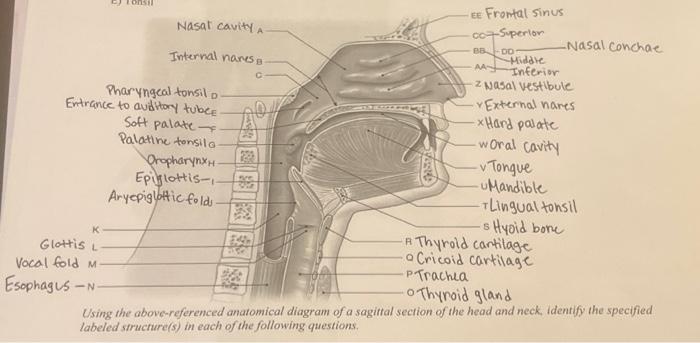 Tonsil
Nasal cavity A
Internal nares B
C
Pharyngeal tonsil D
Entrance to auditory tube E
Soft palate F
Palatine tonsil G
Oropharynx H
Epiglottis - I
Aryepiglottic fold J
K
Glottis L
Vocal fold M
Esophagus - N
EE Frontal sinus
CC Superior
BB DD Nasal conchae
Middle
AA Inferior
Z Nasal vestibule
Y External nares
X Hard palate
W Oral cavity
V Tongue
U Mandible
T Lingual tonsil
S Hyoid bone
R Thyroid cartilage
Q Cricoid cartilage
P Trachea
O Thyroid gland
Using the above-referenced anatomical diagram of a sagittal section of the head and neck, identify the specified
labeled structure(s) in each of the following questions.